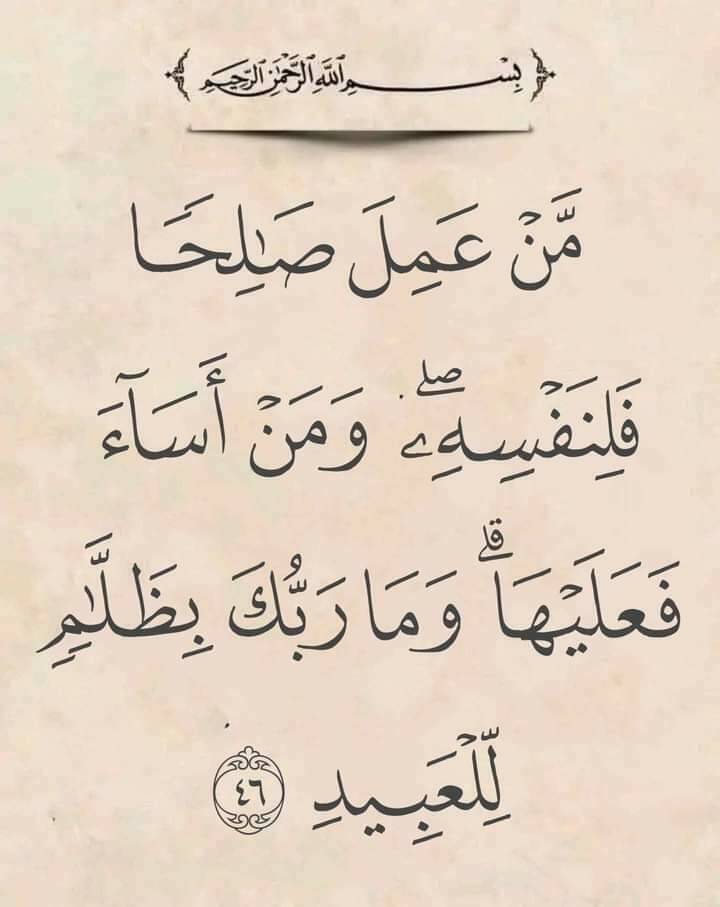 بِسْمِ ٱللَّهِ ٱلرَّحْمَٰنِ ٱلرَّحِيمِ
مَّنْ عَمِلَ صَٰلِحًا
فَلِنَفْسِهِۦ ۖ وَمَنْ أَسَآءَ
فَعَلَيْهَا ۗ وَمَا رَبُّكَ بِظَلَّٰمٍ
لِّلْعَبِيدِ ٤٦